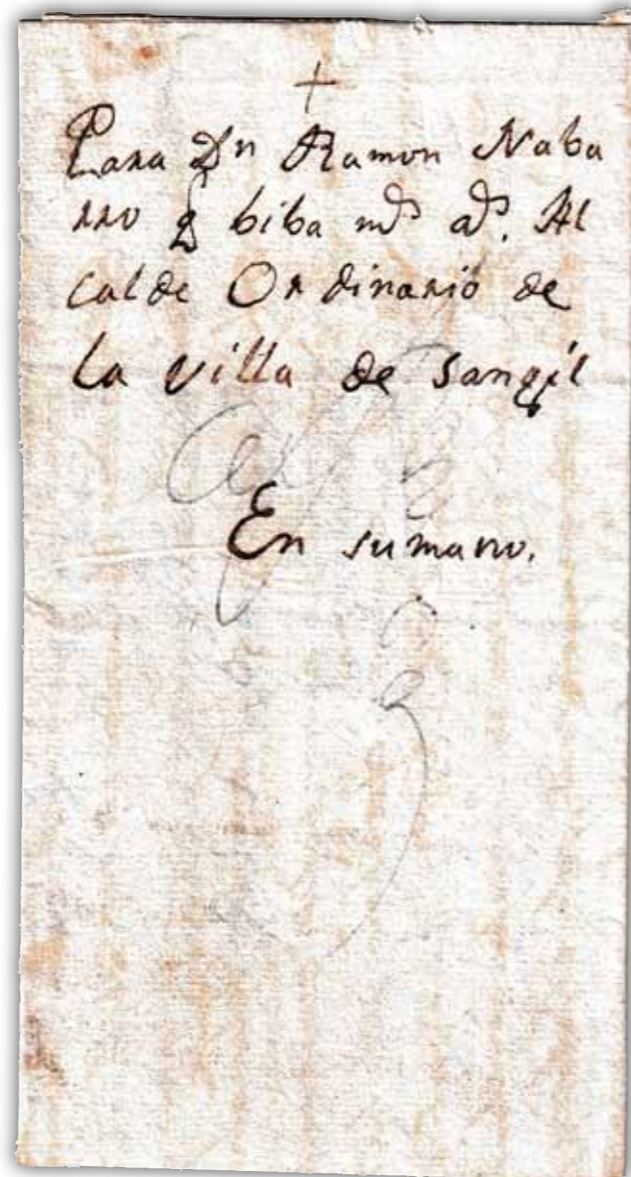 +
Para Dn Ramon Naba
rro q biba ms as. Al
calde Ordinario de
la villa de sangil
En sumano.